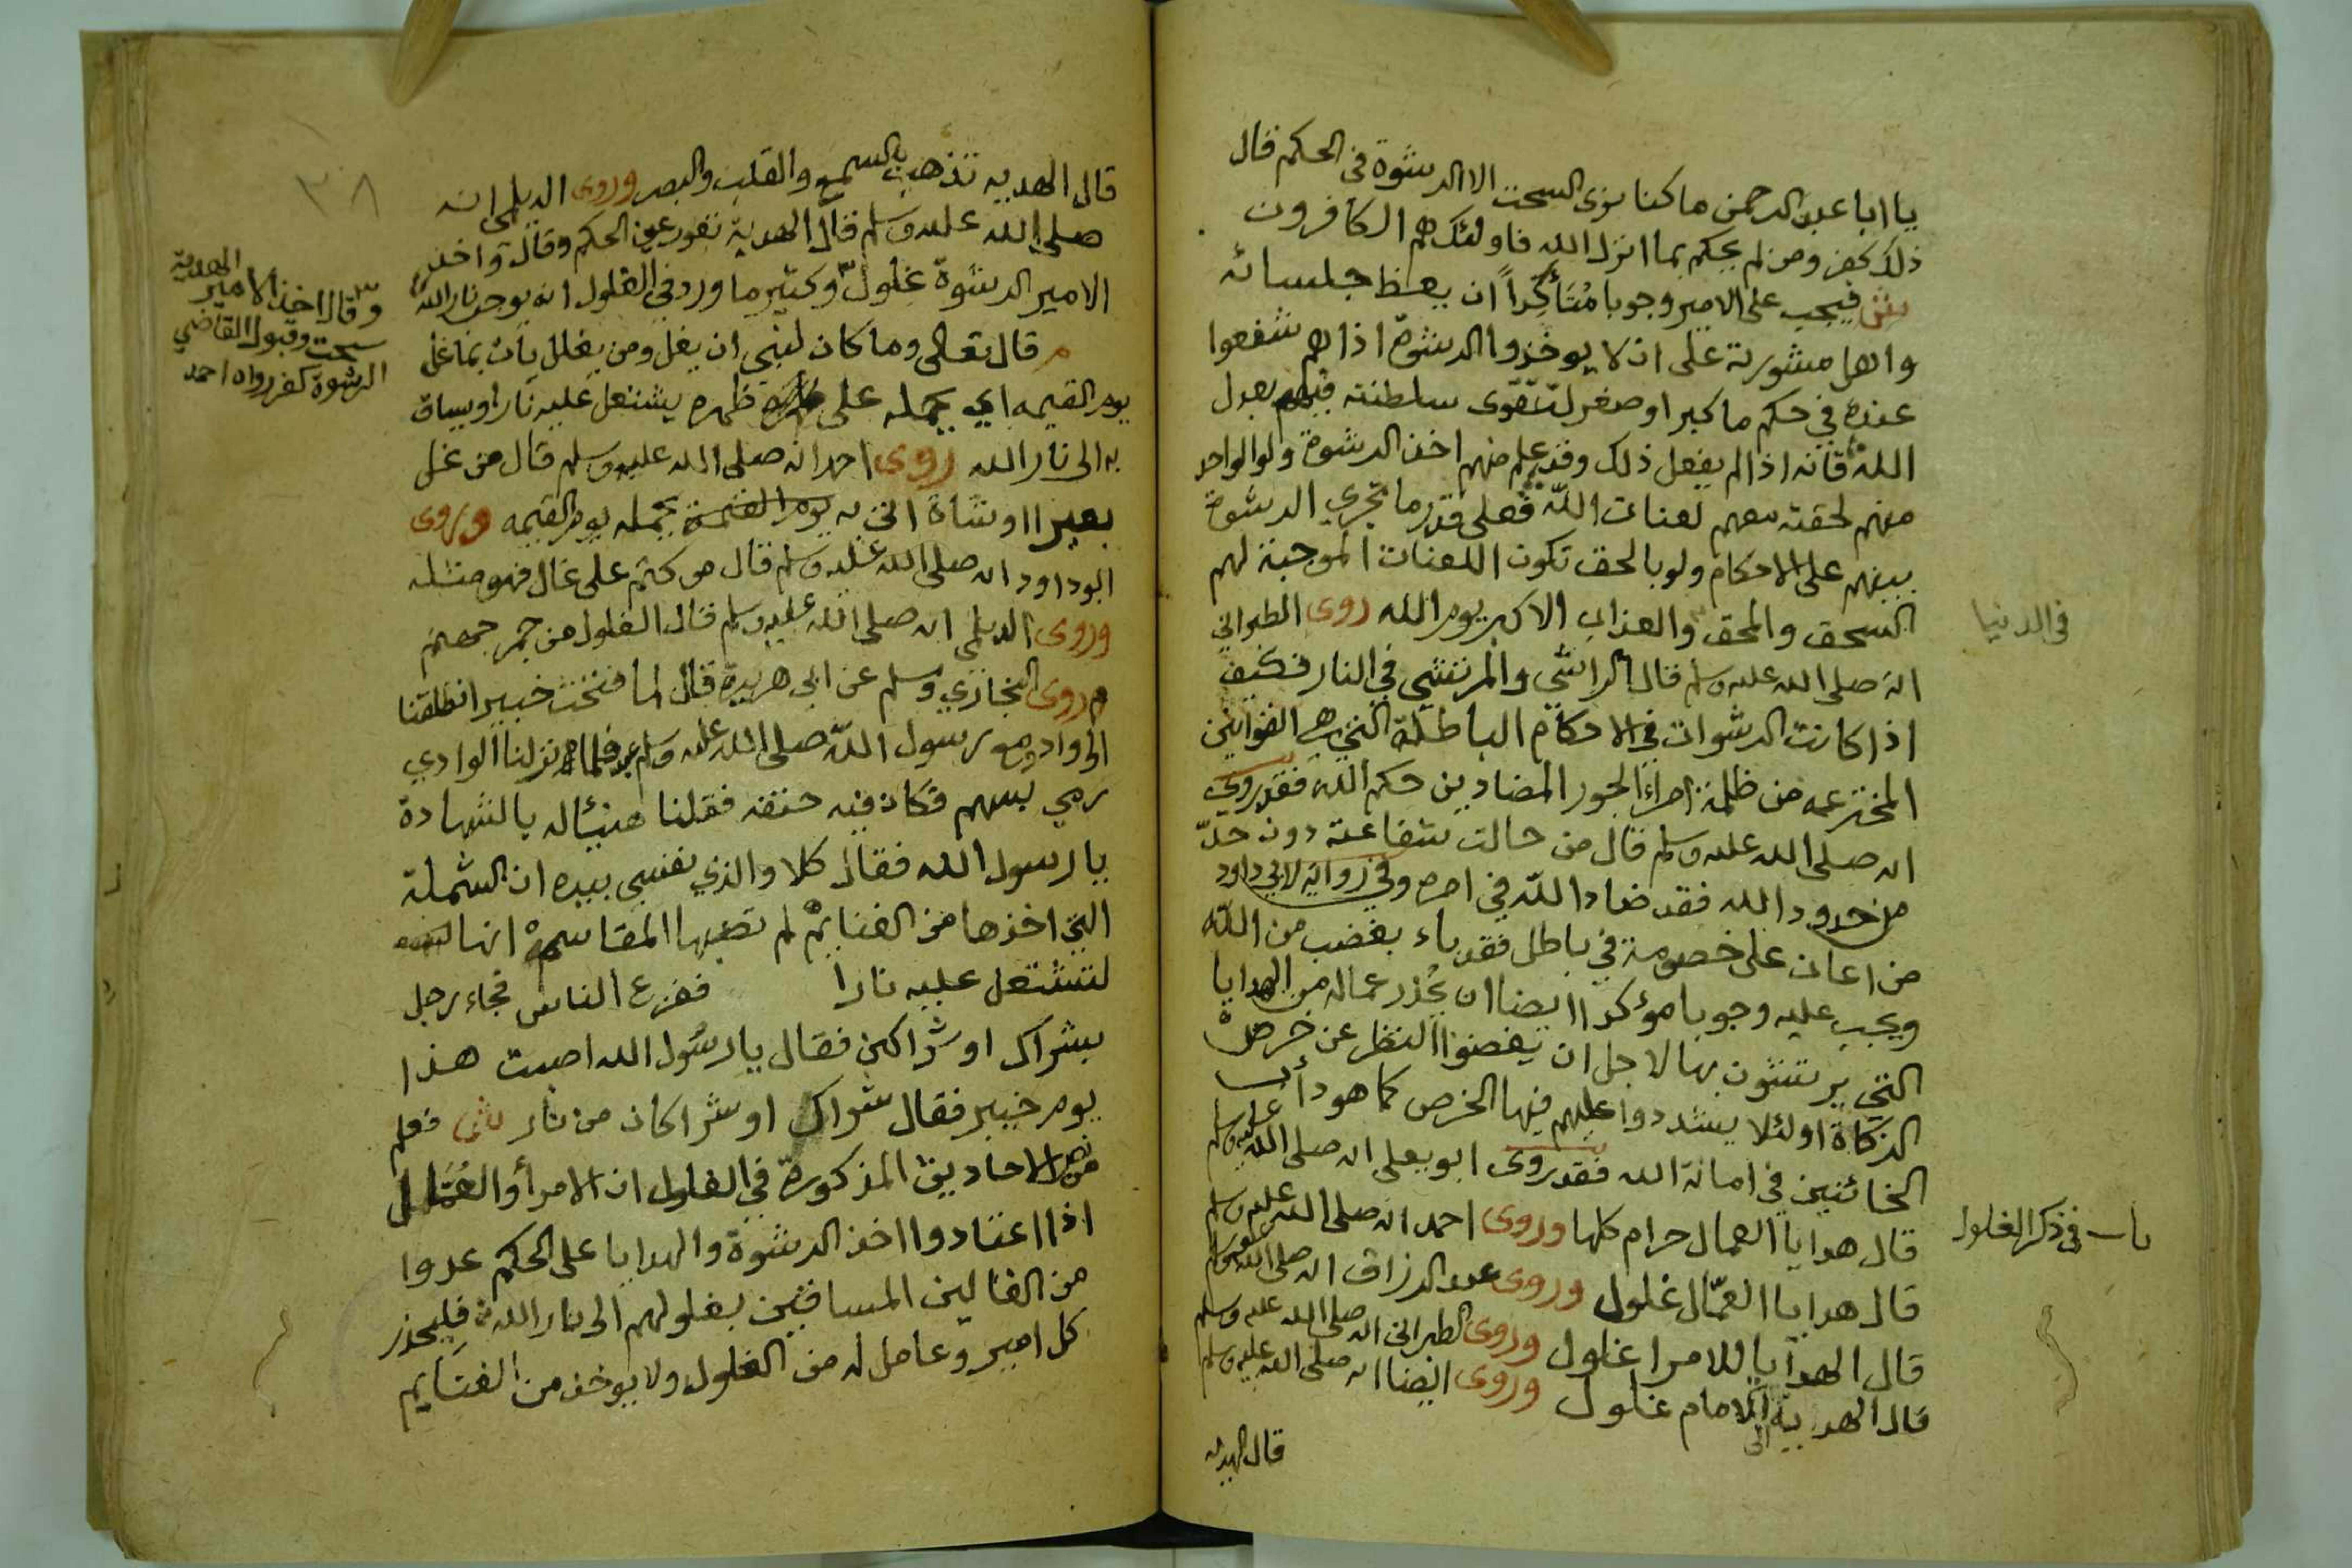 يا ابا عبد الرحمن ما كنا نرى السحت الا الرشوة في الحكم قال
ذلك كفر ومن لم يحكم بما انزل الله فاولئك هم الكافرون
فيجب على الامير وجوبا مُتَأكِّداً ان يعظ جلسائه
واهل مشورته على ان لا يوخذوا الرشوة اذا هم شفعوا
عنده في حكم ما كبر او صغر لتتقوى سلطنته فيهم بعدل
الله فانه اذا لم يفعل ذلك وقد علم منهم اخذ الرشوة ولو الواحد
منهم لحقته معهم لعنات الله فعلى قدر ما تجري الرشوة
بينهم على الاحكام ولو بالحق تكون اللعنات الموجبة لهم
السحق والمحق والعذاب الاكبر يوم الله روى الطبراني
في الدنيا
انه صلى الله عليه وسلم قال الراشي والمرتشي في النار فكيف
اذا كانت الرشوات في الاحكام الباطلة التي هي القوانين
المخترعه من ظلمة امراء الجور المضادين حكم الله فقد روى
انه صلى الله عليه وسلم قال من حالت شفاعته دون حدّ
من حدود الله فقد ضاد الله في امره وفي رواية لابي داود
من اعان على خصومة في باطل فقد باء بغضب من الله
ويجب عليه وجوبا مؤكدا ايضا ان يُحذر عماله من الهدايا
التي يرتشون بها لاجل ان يغضوا النظر عن خرص
الزكاة اولئلا يشددوا عليهم فيها الخرص كما هو دأب
الخائنين في امانة الله فقد روى ابو يعلى انه صلى الله عليه وسلم
قال هدايا العمال حرام كلها وروى احمد انه صلى الله عليه وسلم
باب في ذكر الغلول
قال هدايا العمّال غلول وروى عبد الرزاق انه صلى الله عليه وسلم
قال الهدايا للامرا غلول وروى الطبراني انه صلى الله عليه وسلم
قال الهدية الى الامام غلول وروى ايضا انه صلى الله عليه وسلم
قال الهديه
٣٨
قال الهديه تذهب بالسمع والقلب والبصر وروى الديلمي انه
صلى الله عليه وسلم قال الهدية تعور عين الحكم وقال واخذ
الامير الرشوة غلول وكثير ما ورد في الغلول انه يوجب نار الله
وقال اخذ الامير الهدية
سحت وقبول القاضي
الرشوة كفر رواه احمد
قال تعالى وما كان لنبي ان يغل ومن يغلل يأت بما غل
يوم القيمه اي يحمله على ظهره يشتعل عليه نارا ويساق
به الى نار الله روى احمد انه صلى الله عليه وسلم قال من غل
بعيرا او شاة اتى به يوم القيمة يحمله يوم القيمه وروى
ابوداود انه صلى الله عليه وسلم قال من كتم على غال فهو مثله
وروى الديلمي انه صلى الله عليه وسلم قال الغلول من جمر جهنم
وروى البخاري ومسلم عن ابي هريرة قال لما فتحت خيبر انطلقنا
الى وادٍ مع رسول الله صلى الله عليه وسلم فلما نزلنا الوادي
رمي بسهم فكان فيه حتفه فقلنا هنيئا له بالشهادة
يا رسول الله فقال كلا والذي نفسي بيده ان الشملة
التي اخذها من الغنايم لم تصبها المقاسم انها
لتشتعل عليه نارا ففزع الناس فجاء رجل
بشراك او شراكين فقال يا رسول الله اصبت هذا
يوم خيبر فقال شراك او شراكان من نار فعلم
من هذه الاحاديث المذكورة في الغلول ان الامرأ والعُمَّال
اذا اعتادوا اخذ الرشوة والهدايا على الحكم عدوا
من الغالين المساقين بغلولهم الى نار الله فليحذر
كل امير وعامل له من الغلول ولا يوخذ من الغنايم